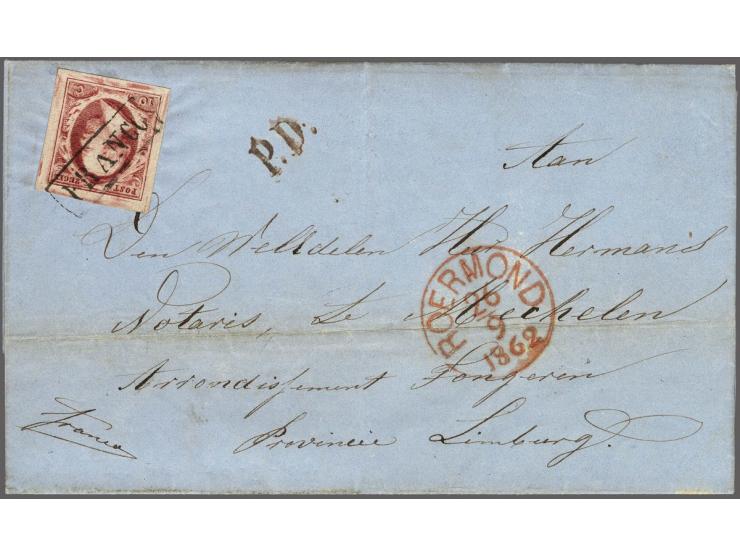 10 C
POST ZEGEL
FRANCO
P.D.
Aan
Den Weledelen Hr Hermans
Notaris, te Mechelen
Arrondissement Tongeren
Provincie Limburg.
Franco
ROERMOND
26
9
1862